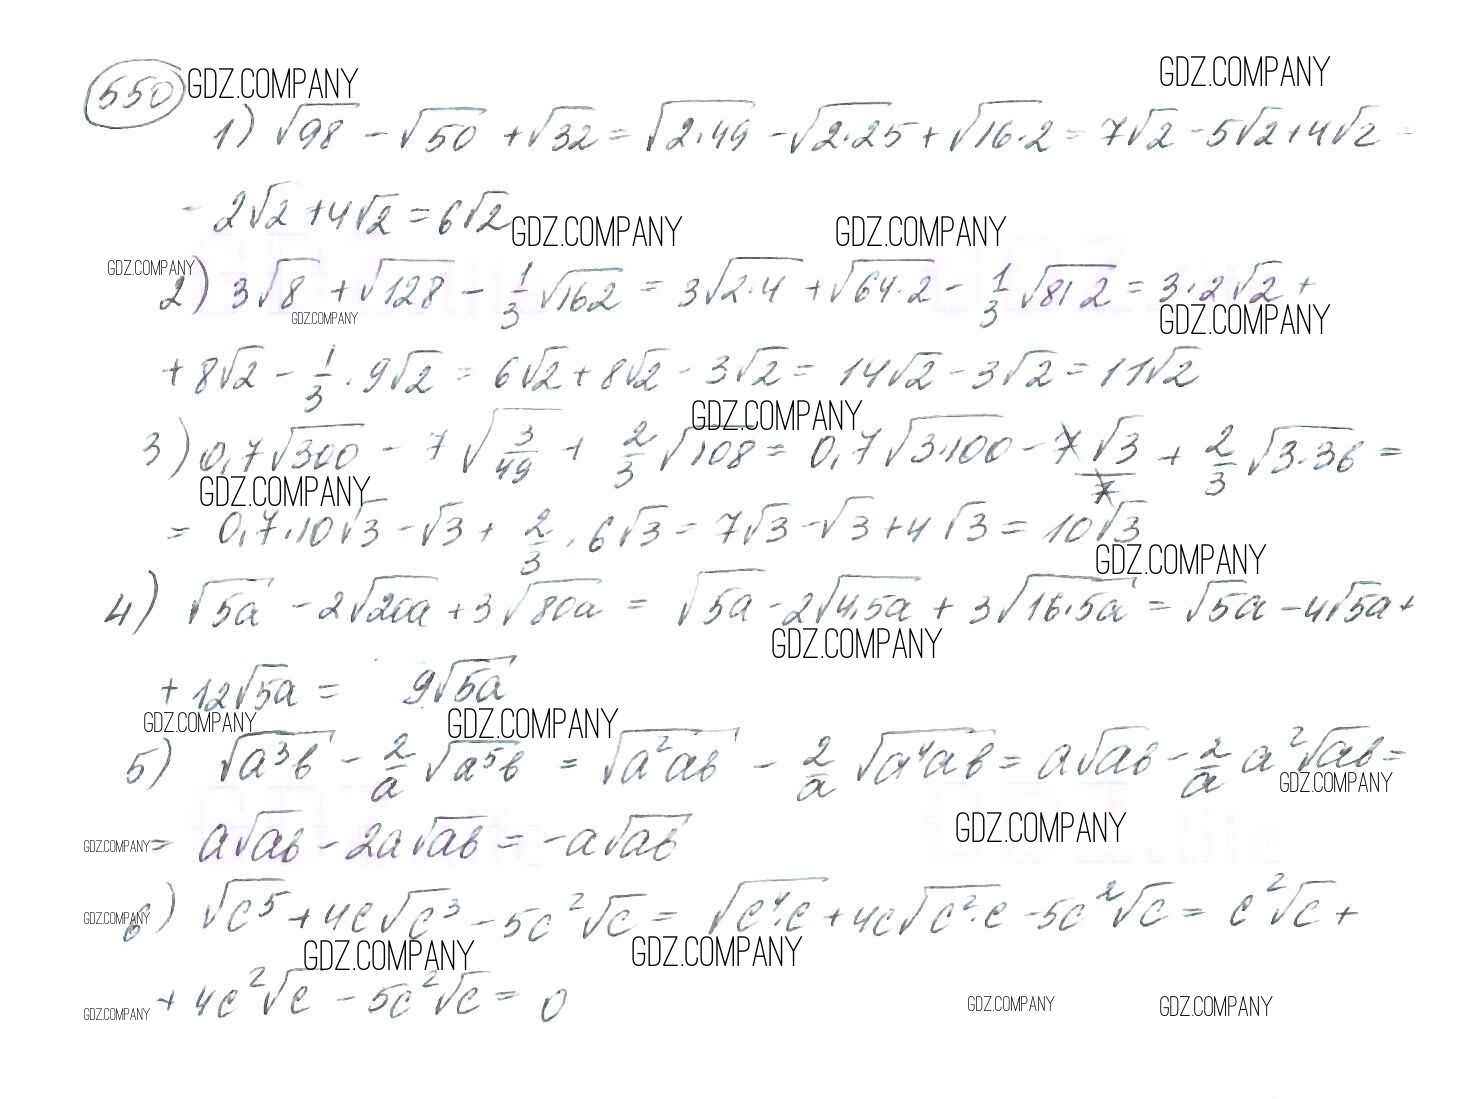 550 GDZ.COMPANY GDZ.COMPANY
1) √98 - √50 + √32 = √2·49 - √2·25 + √16·2 = 7√2 - 5√2 + 4√2 =
- 2√2 + 4√2 = 6√2 GDZ.COMPANY GDZ.COMPANY
GDZ.COMPANY
2) 3√8 + √128 - 1/3 √162 = 3√2·4 + √64·2 - 1/3 √81 2 = 3·2√2 +
GDZ.COMPANY GDZ.COMPANY
+ 8√2 - 1/3 · 9√2 = 6√2 + 8√2 - 3√2 = 14√2 - 3√2 = 11√2
GDZ.COMPANY
3) 0,7√300 - 7√3/49 + 2/3 √108 = 0,7√3·100 - 7√3/7 + 2/3 √3·36 =
GDZ.COMPANY
= 0,7·10√3 - √3 + 2/3 · 6√3 = 7√3 - √3 + 4√3 = 10√3
GDZ.COMPANY
4) √5a - 2√20a + 3√80a = √5a - 2√4·5a + 3√16·5a = √5a - 4√5a +
GDZ.COMPANY
+ 12√5a = 9√5a
GDZ.COMPANY GDZ.COMPANY
5) √a³b - 2/a √a⁵b = √a²ab - 2/a √a⁴ab = a√ab - 2/a a²√ab =
GDZ.COMPANY
GDZ.COMPANY = a√ab - 2a√ab = -a√ab GDZ.COMPANY
GDZ.COMPANY
6) √c⁵ + 4c√c³ - 5c²√c = √c⁴·c + 4c√c²·c - 5c²√c = c²√c +
GDZ.COMPANY GDZ.COMPANY
+ 4c²√c - 5c²√c = 0
GDZ.COMPANY GDZ.COMPANY GDZ.COMPANY